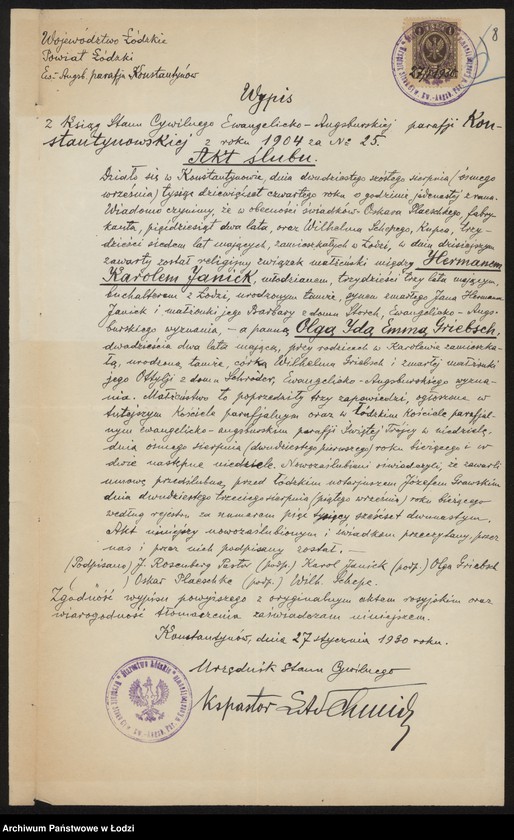 Województwo Łódzkie
Powiat Łódzki
Ew.-Augsb. parafja Konstantynów
8
27/I 1930.
Wypis
z Ksiąg Stanu Cywilnego Ewangelicko-Augsburskiej parafji Kon-
stantynowskiej z roku 1904 za № 25.
Akt ślubu.
Działo się w Konstantynowie, dnia dwudziestego szóstego sierpnia (ósmego
września) tysiąc dziewięćset czwartego roku o godzinie jedenastej z rana.
Wiadomo czynimy, że w obecności świadków - Oskara Plaeschke, fabry-
kanta, pięćdziesiąt dwa lata, oraz Wilhelma Schepego, Kupca, trzy-
dzieści siedem lat mających, zamieszkałych w Łodzi, w dniu dzisiejszym
zawarty został religijny związek małżeński między Hermanem
Karolem Janick, młodzianem, trzydzieści trzy lata mającym,
buchalterem z Łodzi, urodzonym tamże, synem zmarłego Jana Hermana
Janick i małżonki jego Barbary z domu Storch, Ewangelicko-Augs-
burskiego wyznania, - a panną Olgą Idą Emmą Griebsch,
dwadzieścia dwa lata mającą, przy rodzicach w Karolewie zamieszka-
łą, urodzoną tamże, córką Wilhelma Griebsch i zmarłej małżonki
jego Ottylji z domu Schröder, Ewangelicko-Augsburskiego wyzna-
nia. Małżeństwo to poprzedziły trzy zapowiedzi, ogłoszone w
tutejszym Kościele parafjalnym oraz w Łódzkim Kościele parafjal-
nym ewangelicko-augsburskim parafji Świętej Trójcy w niedzielę,
dnia ósmego sierpnia (dwudziestego pierwszego) roku bieżącego i w
dwie następne niedziele. Nowozaślubieni oświadczyli, że zawarli
umowę przedślubną przed Łódzkim notarjuszem Józefem Grawskim
dnia dwudziestego trzeciego sierpnia (piątego września) roku bieżącego
według rejestru za numerem pięć tysięcy sześćset dwunastym.
Akt niniejszy nowozaślubionym i świadkom przeczytany, przez
nas i przez nich podpisany został. -
(Podpisano) J. Rosenberg Pastor (podp.) Karol Janick (podp.) Olga Griebsch
( " ) Oskar Plaeschke (podp.) Wilh. Schepe.
Zgodność wypisu powyższego z oryginalnym aktem rosyjskim oraz
wiarogodność tłomaczenia zaświadczam niniejszem.
Konstantynów, dnia 27 stycznia 1930 roku.
Urzędnik Stanu Cywilnego
Ks pastor
Archiwum Państwowe w Łodzi